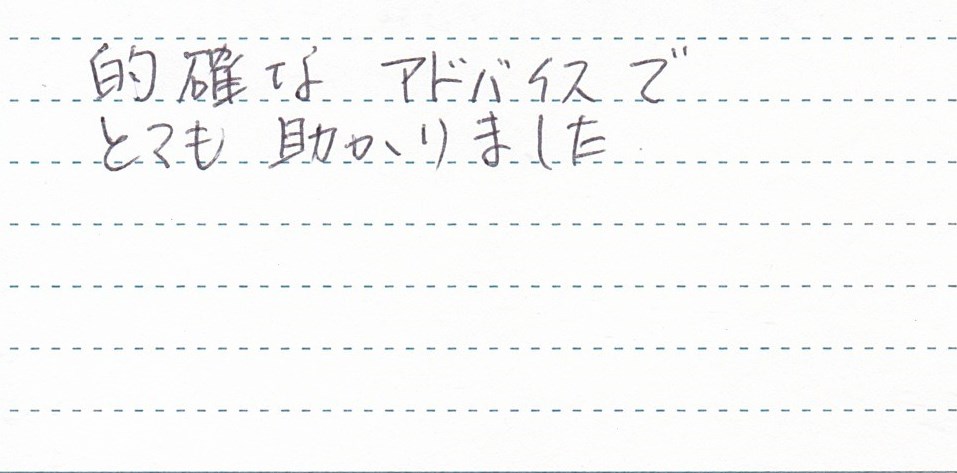 的確な アドバイスで
とても 助かりました